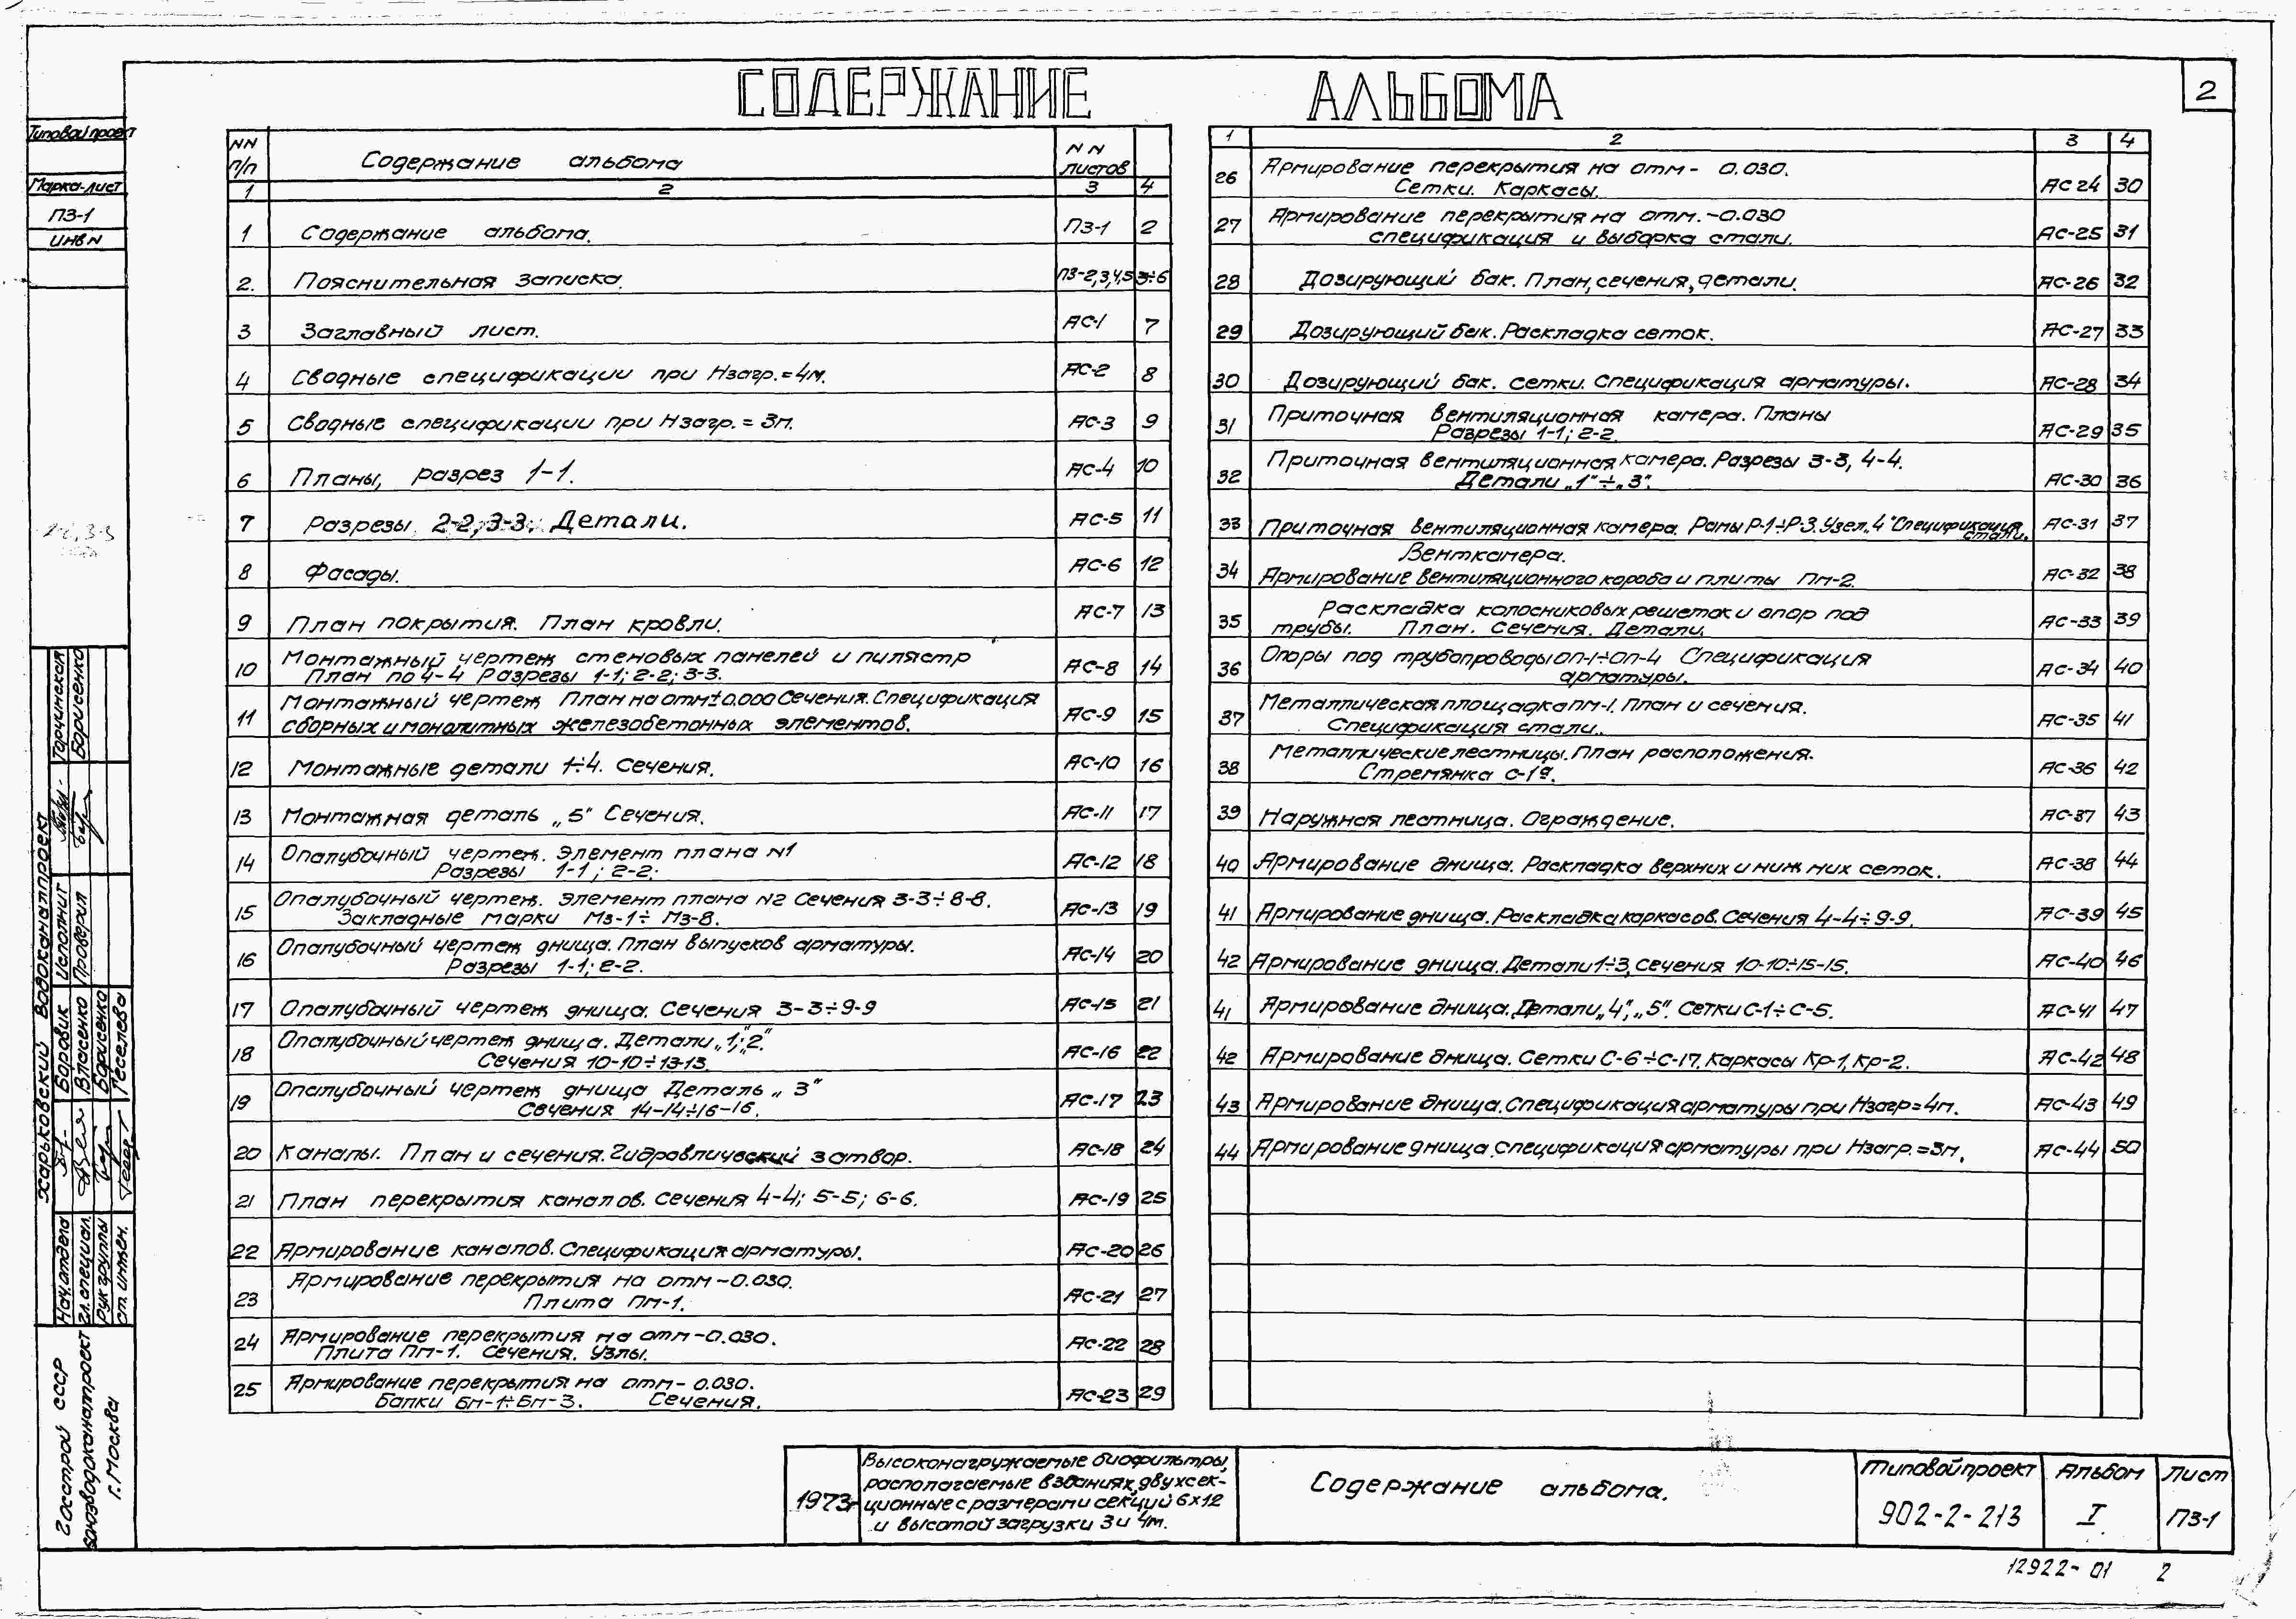 СОДЕРЖАНИЕ АЛЬБОМА
2
Типовой проект
Марка-лист
ПЗ-1
ИНВ N
NN п/п Содержание альбома NN листов
1 2 3 4
1 Содержание альбома. ПЗ-1 2
2. Пояснительная записка. ПЗ-2,3,4,5 3÷6
3 Заглавный лист. АС-1 7
4 Сводные спецификации при Нзагр.=4м. АС-2 8
5 Сводные спецификации при Нзагр.=3м. АС-3 9
6 Планы, разрез 1-1. АС-4 10
7 Разрезы 2-2, 3-3, Детали. АС-5 11
8 Фасады. АС-6 12
9 План покрытия. План кровли. АС-7 13
10 Монтажный чертеж стеновых панелей и пилястр
План по 4-4 Разрезы 1-1; 2-2; 3-3. АС-8 14
11 Монтажный чертеж План на отм±0.000 Сечения. Спецификация
сборных и монолитных железобетонных элементов. АС-9 15
12 Монтажные детали 1÷4. Сечения. АС-10 16
13 Монтажная деталь „5" Сечения. АС-11 17
14 Опалубочный чертеж. Элемент плана N1
Разрезы 1-1; 2-2; АС-12 18
15 Опалубочный чертеж. Элемент плана N2 Сечения 3-3÷8-8.
Закладные марки Мз-1÷Мз-8. АС-13 19
16 Опалубочный чертеж днища. План выпусков арматуры.
Разрезы 1-1; 2-2. АС-14 20
17 Опалубочный чертеж днища. Сечения 3-3÷9-9 АС-15 21
18 Опалубочный чертеж днища. Детали „1", „2".
Сечения 10-10÷13-13. АС-16 22
19 Опалубочный чертеж днища Деталь „3"
Сечения 14-14÷16-16. АС-17 23
20 Каналы. План и сечения. Гидравлический затвор. АС-18 24
21 План перекрытия каналов. Сечения 4-4; 5-5; 6-6. АС-19 25
22 Армирование каналов. Спецификация арматуры. АС-20 26
23 Армирование перекрытия на отм -0.030.
Плита Пм-1. АС-21 27
24 Армирование перекрытия на отм -0.030.
Плита Пм-1. Сечения. Узлы. АС-22 28
25 Армирование перекрытия на отм -0.030.
Балки Бм-1÷Бм-3. Сечения. АС-23 29
1 2 3 4
26 Армирование перекрытия на отм - 0.030.
Сетки. Каркасы. АС 24 30
27 Армирование перекрытия на отм.-0.030
спецификация и выборка стали. АС-25 31
28 Дозирующий бак. План, сечения, детали. АС-26 32
29 Дозирующий бак. Раскладка сеток. АС-27 33
30 Дозирующий бак. Сетки. Спецификация арматуры. АС-28 34
31 Приточная вентиляционная камера. Планы
Разрезы 1-1; 2-2. АС-29 35
32 Приточная вентиляционная камера. Разрезы 3-3, 4-4.
Детали „1"÷„3". АС-30 36
33 Приточная вентиляционная камера. Рамы Р-1÷Р-3. Узел „4" Спецификация
стали. АС-31 37
34 Венткамера.
Армирование вентиляционного короба и плиты Пм-2. АС-32 38
35 Раскладка колосниковых решеток и опор под
трубы. План. Сечения. Детали. АС-33 39
36 Опоры под трубопроводы ОП-1÷ОП-4 Спецификация
арматуры. АС-34 40
37 Металлическая площадка ПМ-1. План и сечения.
Спецификация стали. АС-35 41
38 Металлические лестницы. План расположения.
Стремянка С-1а. АС-36 42
39 Наружная лестница. Ограждение. АС-37 43
40 Армирование днища. Раскладка верхних и нижних сеток. АС-38 44
41 Армирование днища. Раскладка каркасов. Сечения 4-4÷9-9. АС-39 45
42 Армирование днища. Детали 1÷3, сечения 10-10÷15-15. АС-40 46
41 Армирование днища. Детали „4", „5". Сетки С-1÷С-5. АС-41 47
42 Армирование днища. Сетки С-6÷С-17. Каркасы Кр-1, Кр-2. АС-42 48
43 Армирование днища. Спецификация арматуры при Нзагр=4м. АС-43 49
44 Армирование днища. Спецификация арматуры при Нзагр.=3м. АС-44 50
Госстрой СССР
Союзводоканалпроект
г. Москва
Харьковский Водоканалпроект
Нач. отдела Боровик Исполнит
Гл. специал. Власенко Проверил Борисенко
Рук группы Борисенко
Ст. инжен. Теселева
1973г
Высоконагружаемые биофильтры,
располагаемые в зданиях, двухсек-
ционные с размерами секций 6х12
и высотой загрузки 3 и 4м.
Содержание альбома.
Типовой проект
902-2-213
Альбом
I
Лист
ПЗ-1
12922-01 2